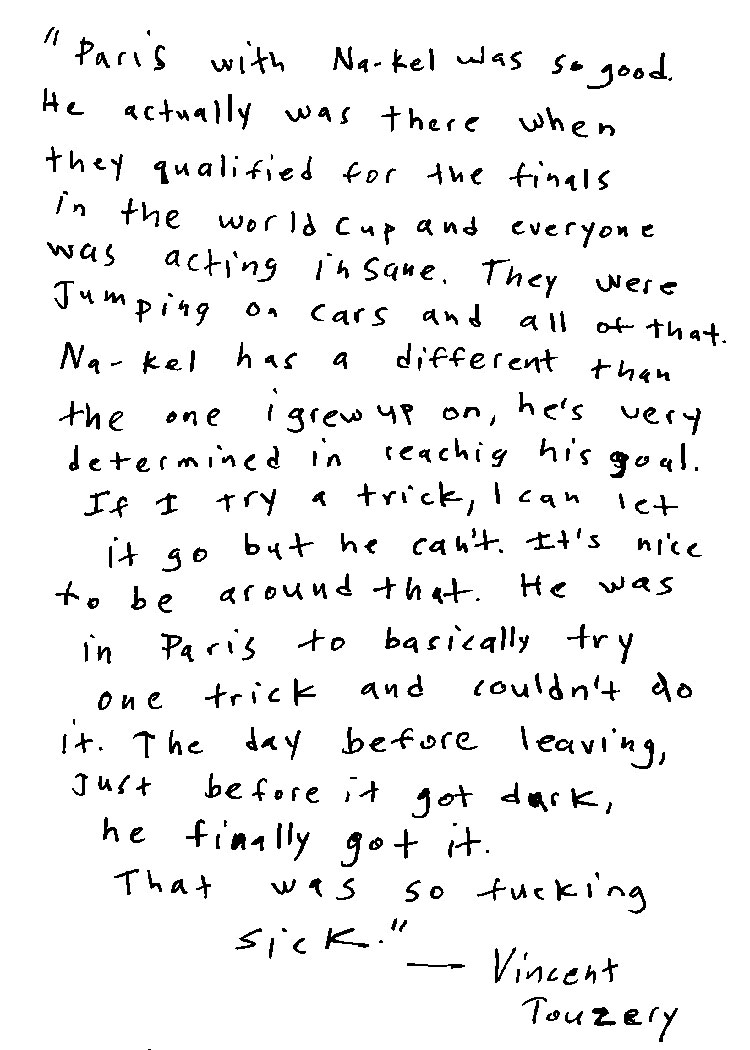 "Paris with Na-kel was so good.
He actually was there when
they qualified for the finals
in the world cup and everyone
was acting insane. They were
Jumping on cars and all of that.
Na-kel has a different than
the one i grew up on, he's very
determined in reachig his goal.
If I try a trick, I can let
it go but he can't. It's nice
to be around that. He was
in Paris to basically try
one trick and couldn't do
it. The day before leaving,
Just before it got dark,
he finally got it.
That was so fucking
sick." — Vincent
Touzery